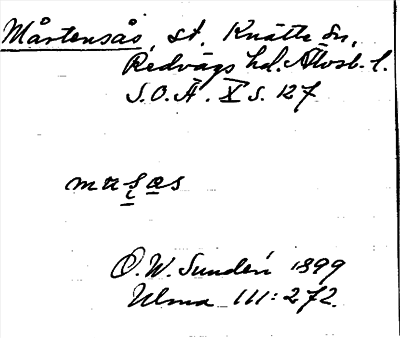 Mårtensås, st. Knätte sn,
Redvägs hd. Älvsb. l.
S.O.Ä. X s. 127
O.W. Sundén 1899
Ulma 111:272.